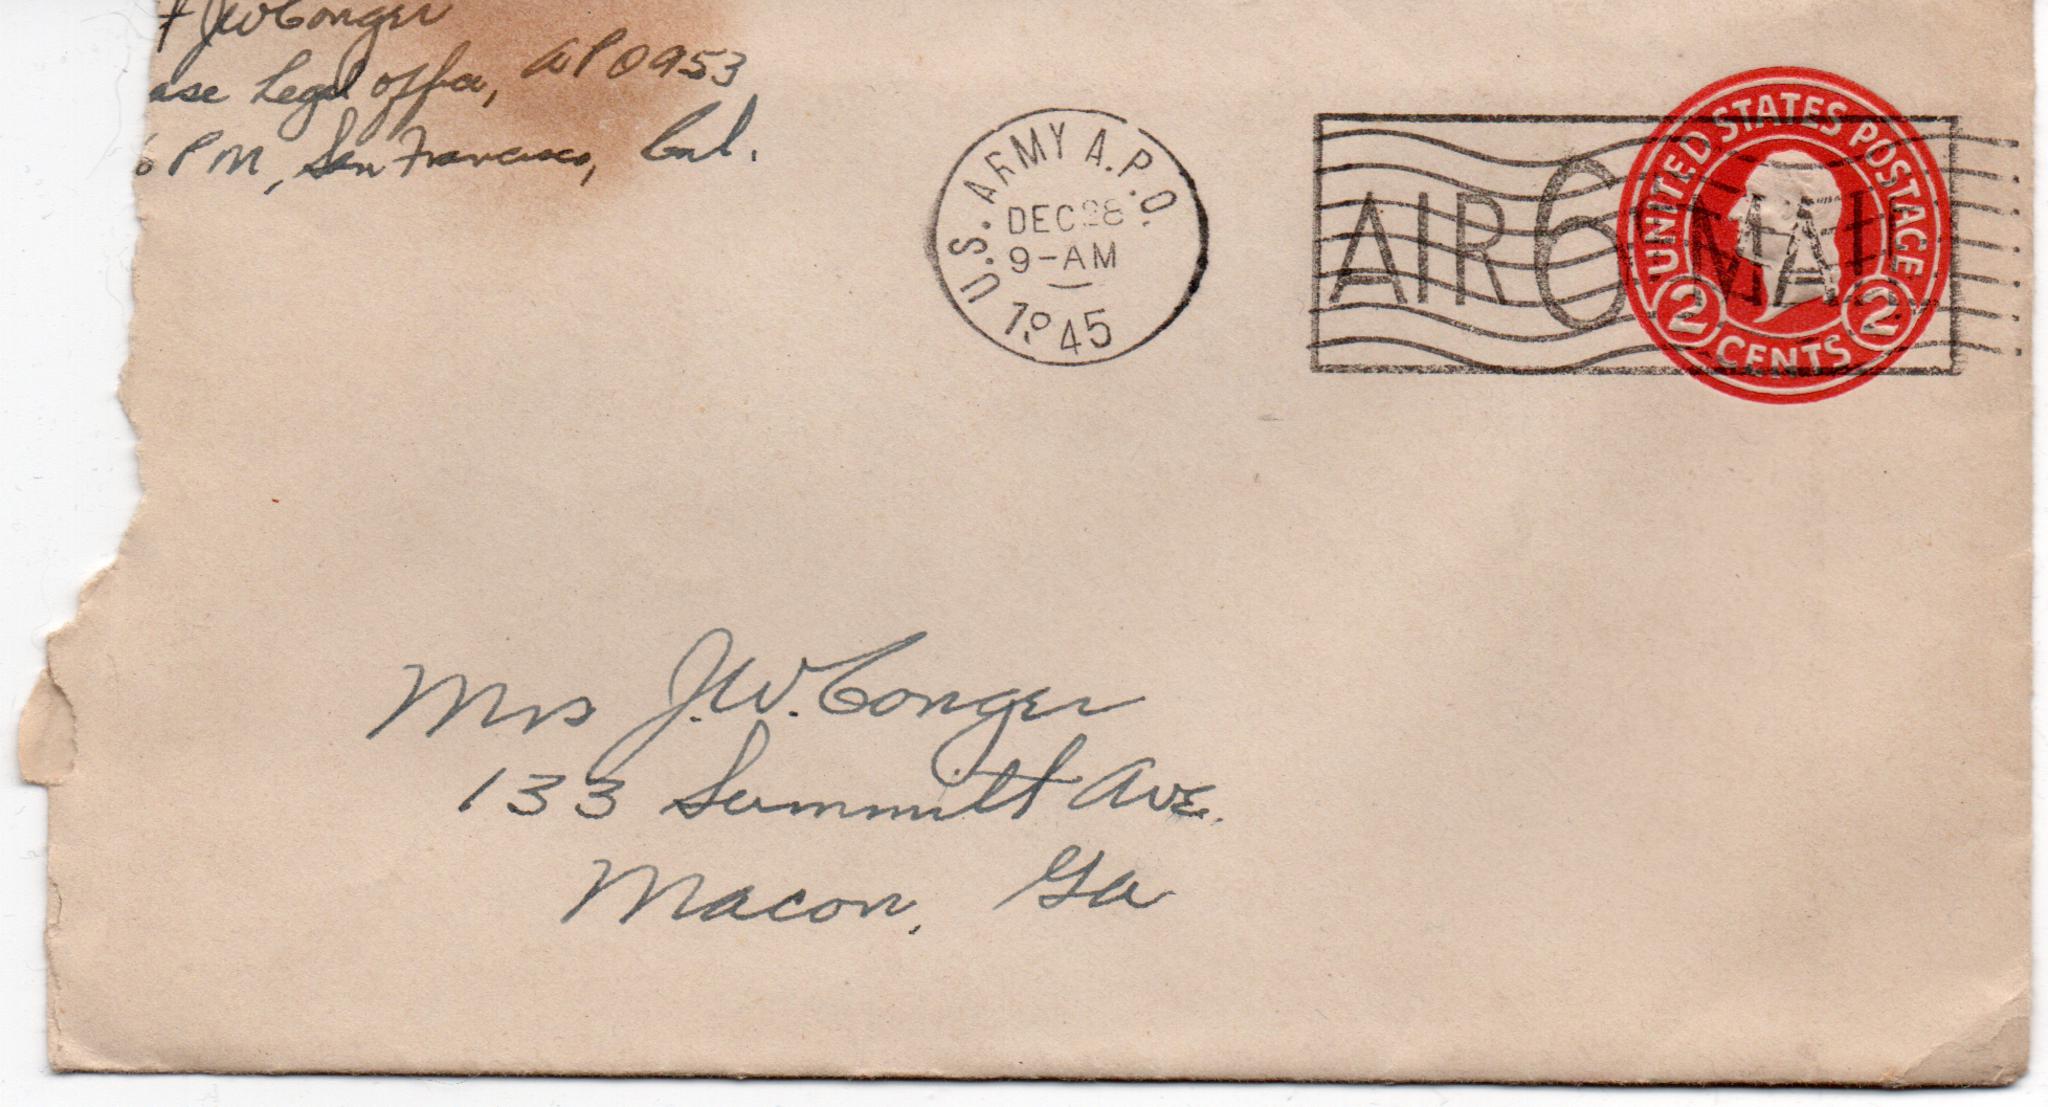 t JW Conger
ase Legal Office, APO 953
% PM, San Francisco, Cal.
U.S. ARMY A.P.O.
DEC 28
9-AM
1945
AIR 6 MAIL
UNITED STATES POSTAGE
2 CENTS 2
Mrs J.W. Conger
133 Summitt Ave.
Macon, Ga